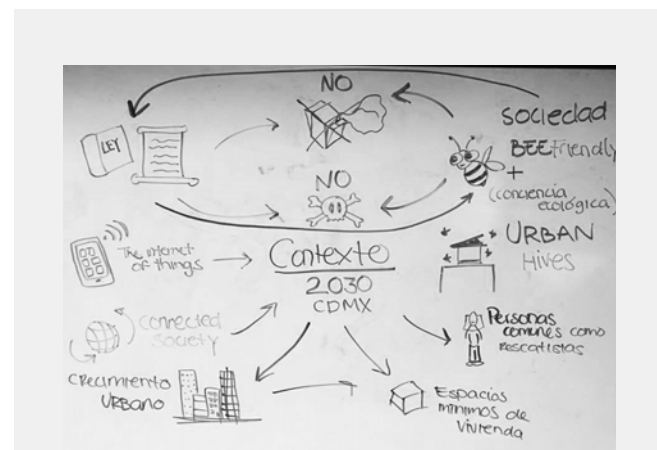 NO
sociedad
BEEfriendly
+
(conciencia
ecológica)
LEY
NO
URBAN
Hives
The internet
of things
Contexto
2030
CDMX
Connected
Society
Personas
comunes como
rescatistas
Crecimiento
URBANO
Espacios
mínimos de
vivienda